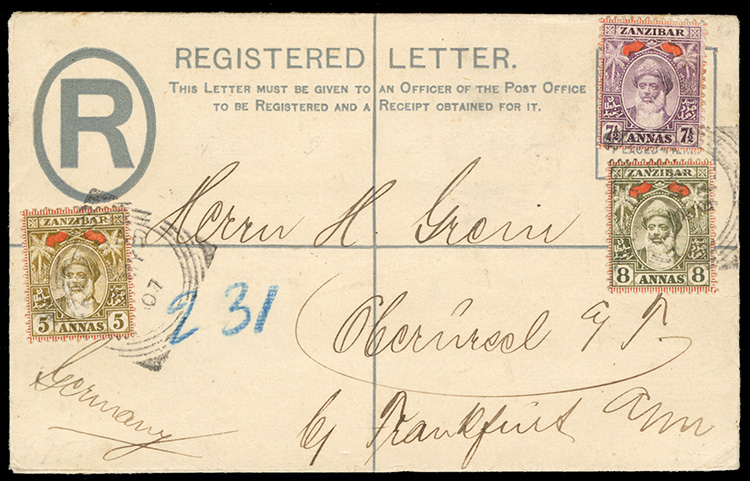 REGISTERED LETTER.
THIS LETTER MUST BE GIVEN TO AN OFFICER OF THE POST OFFICE
TO BE REGISTERED AND A RECEIPT OBTAINED FOR IT.
R
ZANZIBAR
7½ ANNAS 7½
Herrn H. Grein
ZANZIBAR
8 ANNAS 8
ZANZIBAR
5 ANNAS 5
07
231
Oberursel a/T.
Germany
b/ Frankfurt a/m